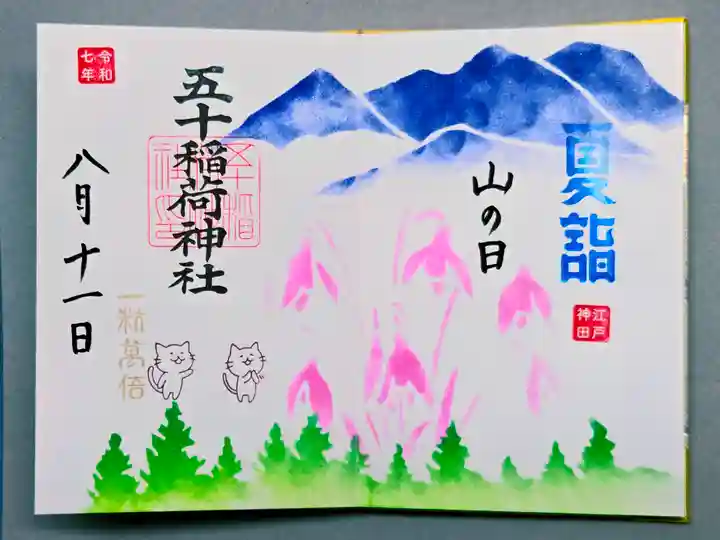 夏詣
江戸
神田
山の日
五十稲荷神社
令和
七年
八月十一日
一粒萬倍